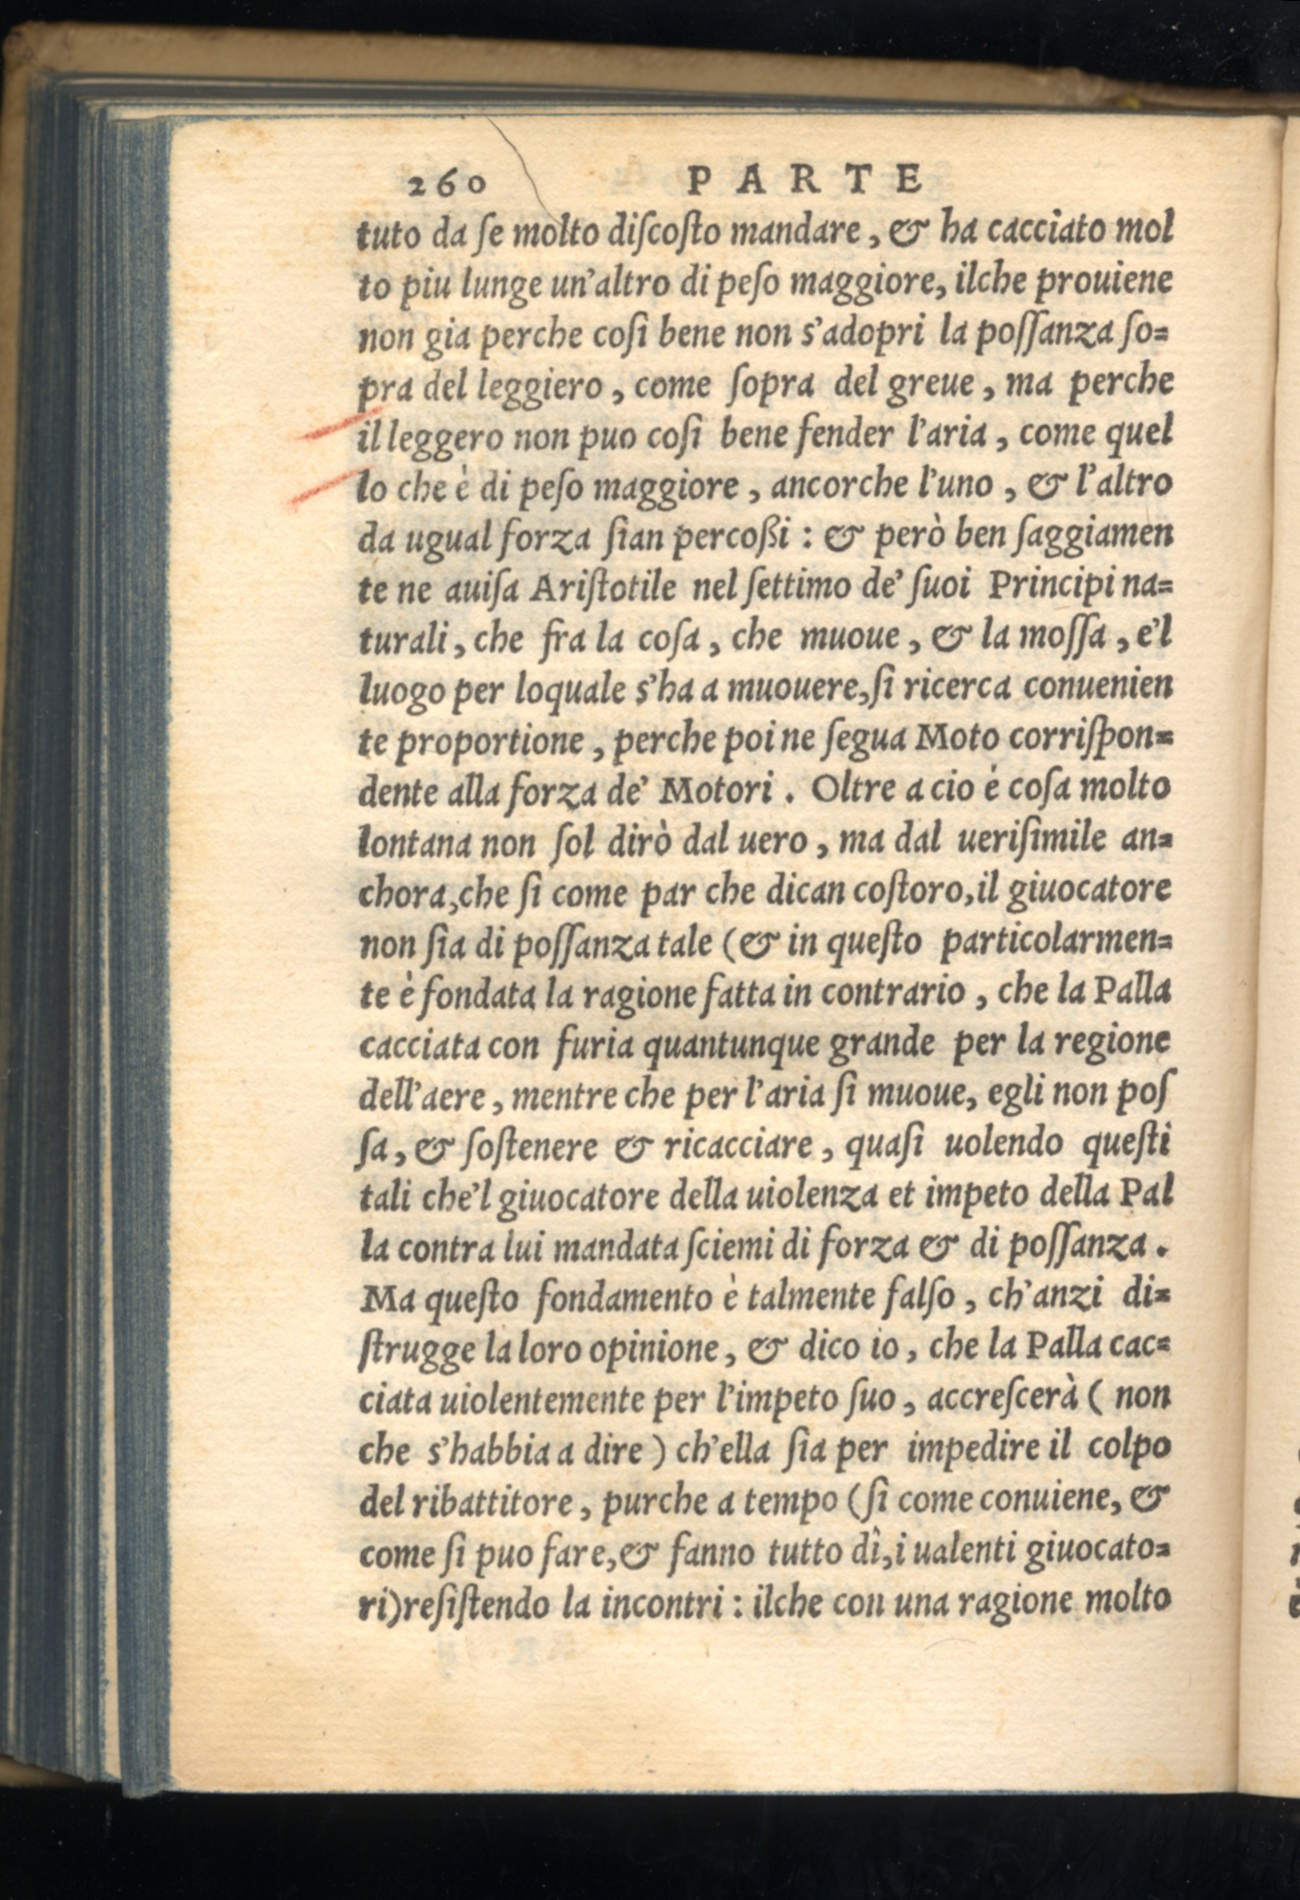 260 PARTE
tuto da ſe molto diſcoſto mandare, & ha cacciato mol
to piu lunge un'altro di peſo maggiore, ilche prouiene
non gia perche coſi bene non s'adopri la poſſanza ſo=
pra del leggiero, come ſopra del greue, ma perche
il leggero non puo coſi bene fender l'aria, come quel
lo che è di peſo maggiore, ancorche l'uno, & l'altro
da ugual forza ſian percoßi: & però ben ſaggiamen
te ne auiſa Ariſtotile nel ſettimo de' ſuoi Principi na=
turali, che fra la coſa, che muoue, & la moſſa, e'l
luogo per loquale s'ha a muouere, ſi ricerca conuenien
te proportione, perche poi ne ſegua Moto corriſpon=
dente alla forza de' Motori. Oltre a cio è coſa molto
lontana non ſol dirò dal uero, ma dal ueriſimile an=
chora, che ſi come par che dican coſtoro, il giuocatore
non ſia di poſſanza tale (& in queſto particolarmen=
te è fondata la ragione fatta in contrario, che la Palla
cacciata con furia quantunque grande per la regione
dell'aere, mentre che per l'aria ſi muoue, egli non poſ
ſa, & ſoſtenere & ricacciare, quaſi uolendo queſti
tali che'l giuocatore della uiolenza et impeto della Pal
la contra lui mandata ſciemi di forza & di poſſanza.
Ma queſto fondamento è talmente falſo, ch'anzi di=
ſtrugge la loro opinione, & dico io, che la Palla cac=
ciata uiolentemente per l'impeto ſuo, accreſcerà ( non
che s'habbia a dire ) ch'ella ſia per impedire il colpo
del ribattitore, purche a tempo (ſi come conuiene, &
come ſi puo fare, & fanno tutto dì, i ualenti giuocato=
ri) reſiſtendo la incontri: ilche con una ragione molto